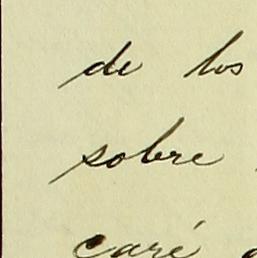 de los
sobre
caré